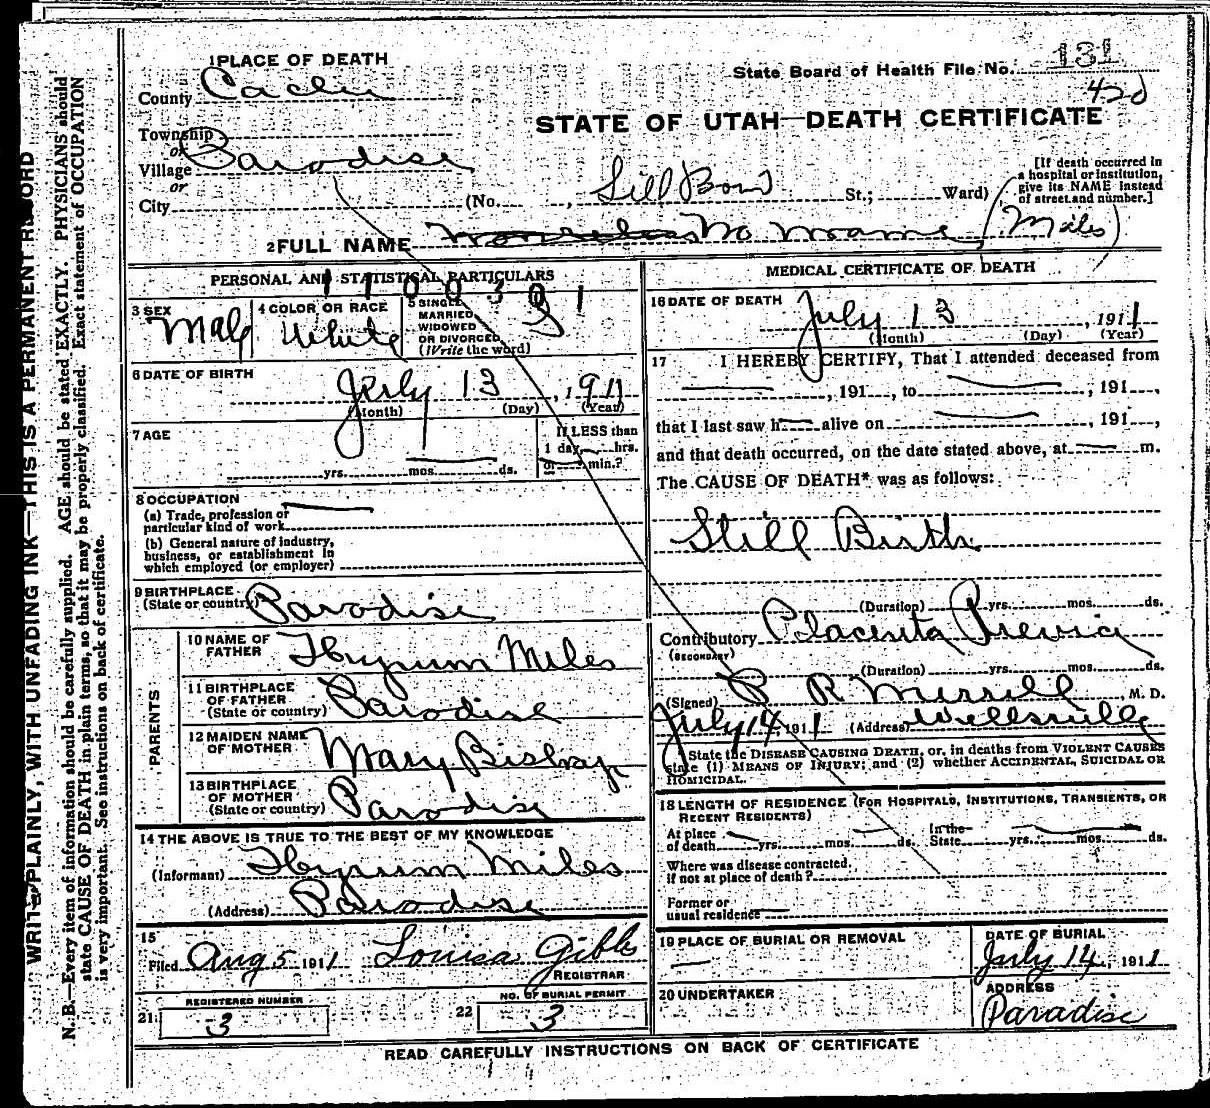 1 PLACE OF DEATH
State Board of Health File No. 131
County Cache
42d
STATE OF UTAH—DEATH CERTIFICATE
Township
or
Village Paradise
or
City (No. , Still Born St.; Ward)
[If death occurred in
a hospital or institution,
give its NAME instead
of street and number.]
2 FULL NAME No Name (Miles)
PERSONAL AND STATISTICAL PARTICULARS
1100301
3 SEX
Male
4 COLOR OR RACE
White
5 SINGLE
MARRIED
WIDOWED
OR DIVORCED
(Write the word)
S
6 DATE OF BIRTH
July 13, 1911
(Month) (Day) (Year)
7 AGE
If LESS than
1 day, hrs.
yrs. mos. ds. or min.?
8 OCCUPATION
(a) Trade, profession or
particular kind of work
(b) General nature of industry,
business, or establishment in
which employed (or employer)
9 BIRTHPLACE
(State or country) Paradise
PARENTS
10 NAME OF
FATHER Hyrum Miles
11 BIRTHPLACE
OF FATHER
(State or country) Paradise
12 MAIDEN NAME
OF MOTHER Mary Bishop
13 BIRTHPLACE
OF MOTHER
(State or country) Paradise
14 THE ABOVE IS TRUE TO THE BEST OF MY KNOWLEDGE
(Informant) Hyrum Miles
(Address) Paradise
15
Filed Aug 5 1911 Louisa Gibbs
REGISTRAR
REGISTERED NUMBER
21 3
NO. OF BURIAL PERMIT
22 3
MEDICAL CERTIFICATE OF DEATH
16 DATE OF DEATH
July 13, 1911
(Month) (Day) (Year)
17 I HEREBY CERTIFY, That I attended deceased from
, 191 , to , 191 ,
that I last saw h alive on , 191 ,
and that death occurred, on the date stated above, at m.
The CAUSE OF DEATH* was as follows:
Still Birth
(Duration) yrs. mos. ds.
Contributory Placenta Previa
(SECONDARY)
(Duration) yrs. mos. ds.
(Signed) P R Merrill, M. D.
July 14, 1911 (Address) Wellsville
State the DISEASE CAUSING DEATH, or, in deaths from VIOLENT CAUSES
state (1) MEANS OF INJURY; and (2) whether ACCIDENTAL, SUICIDAL OR
HOMICIDAL.
18 LENGTH OF RESIDENCE (FOR HOSPITALS, INSTITUTIONS, TRANSIENTS, OR
RECENT RESIDENTS)
At place
of death yrs. mos. ds.
In the
State yrs. mos. ds.
Where was disease contracted,
If not at place of death?
Former or
usual residence
19 PLACE OF BURIAL OR REMOVAL
DATE OF BURIAL
July 14, 1911
20 UNDERTAKER
ADDRESS
Paradise
READ CAREFULLY INSTRUCTIONS ON BACK OF CERTIFICATE
WRITE PLAINLY, WITH UNFADING INK—THIS IS A PERMANENT RECORD
N. B.—Every item of information should be carefully supplied. AGE should be stated EXACTLY. PHYSICIANS should
state CAUSE OF DEATH in plain terms, so that it may be properly classified. Exact statement of OCCUPATION
is very important. See instructions on back of certificate.